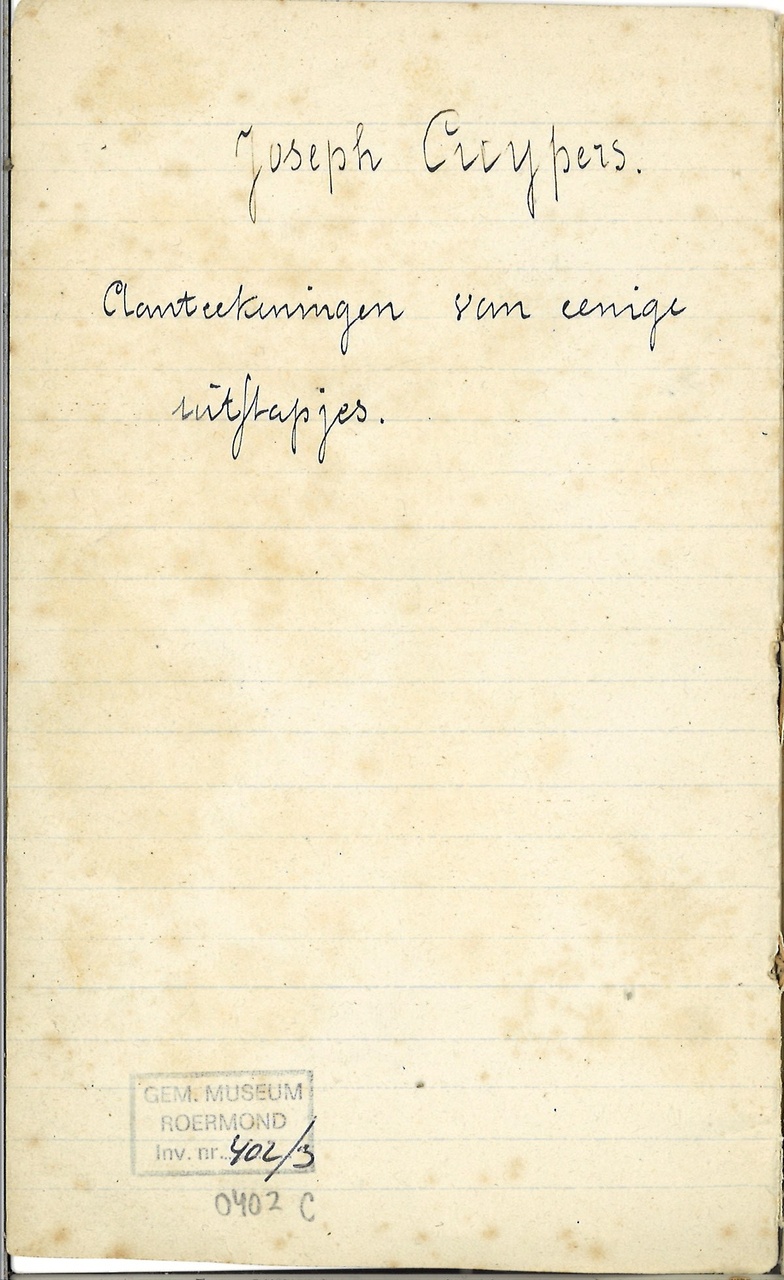 Joseph Cuypers.
Aanteekeningen van eenige
uitstapjes.
GEM. MUSEUM
ROERMOND
Inv. nr. 402/3
0402 C